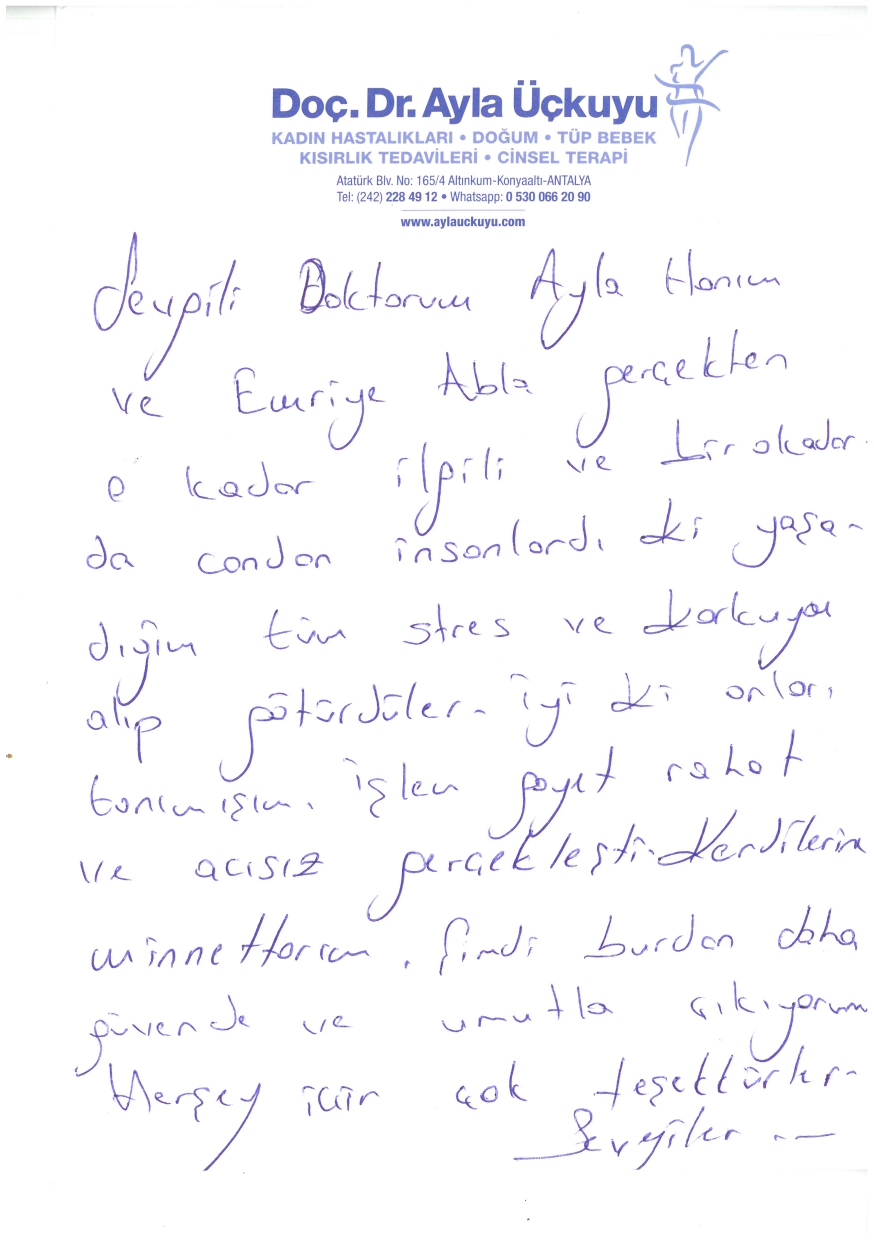 Doç. Dr. Ayla Üçkuyu
KADIN HASTALIKLARI • DOĞUM • TÜP BEBEK
KISIRLIK TEDAVİLERİ • CİNSEL TERAPİ
Atatürk Blv. No: 165/4 Altınkum-Konyaaltı-ANTALYA
Tel: (242) 228 49 12 • Whatsapp: 0 530 066 20 90
www.aylauckuyu.com
Sevgili Doktorum Ayla Hanım
ve Emriye Abla gerçekten
o kadar ilgili ve bir okadar
da candan insanlardı ki yaşa-
dığım tüm stres ve korkuyu
alıp götürdüler. İyi ki onları
tanımışım. İşlem gayet rahat
ve acısız gerçekleşti. Kendilerine
minnettarım. Şimdi burdan daha
güvende ve umutla çıkıyorum
Herşey için çok teşekkürler.
Sevgiler ...